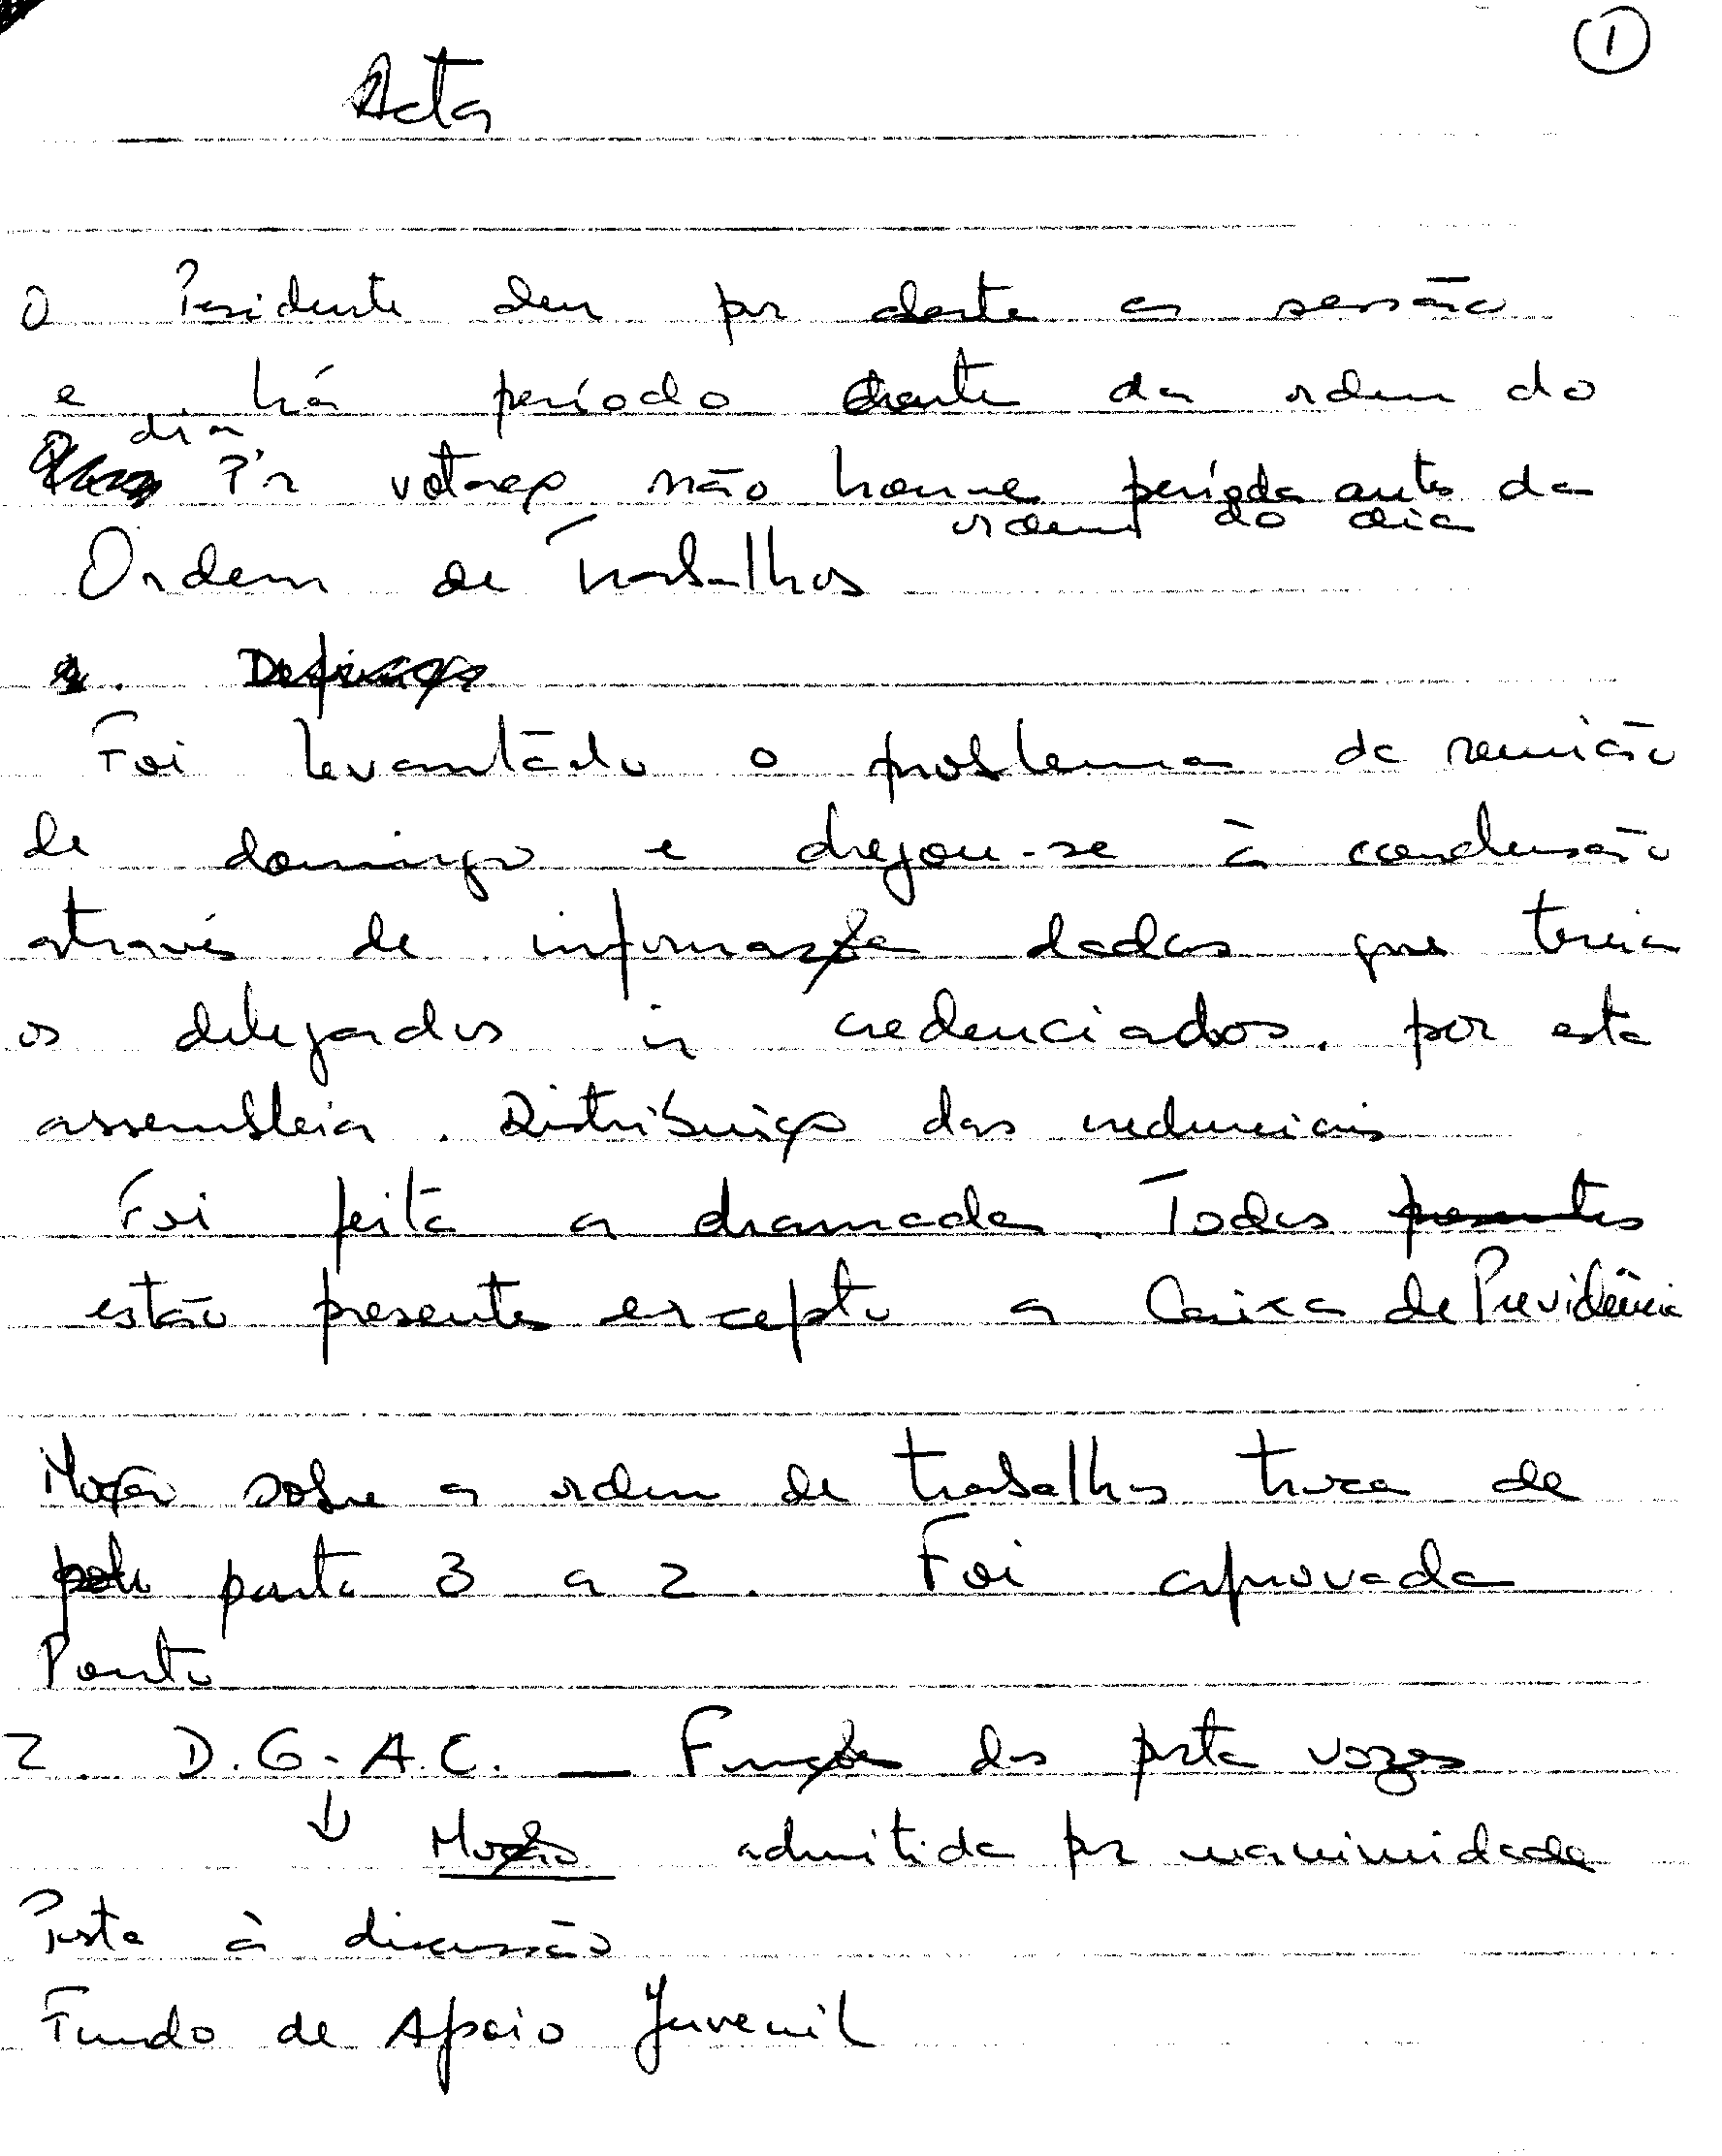 1
Acta
O Presidente deu por aberta a sessão
e há período antes da ordem do
dia
Por votação não houve período antes da
ordem do dia
Ordem de Trabalhos
Foi levantado o problema da reunião
de domingo e chegou-se à conclusão
através de informações dadas que teria
os delegados ir credenciados. por esta
assembleia. Distribuição das credenciais
Foi feita a chamada. Todos presentes
estão presentes excepto a Caixa de Previdência
Moção sobre a ordem de trabalhos troca de
ponto 3 a 2. Foi aprovada
Ponto
2. D.G.A.C. — Funções dos porta vozes
↓ Moção admitida por unanimidade
Posta à discussão
Fundo de Apoio Juvenil